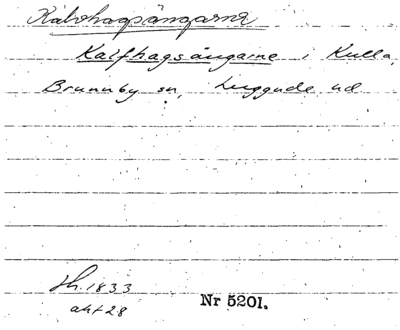 Kalvhagsängarna
Kalfhagsängarne i Kulla,
Brunnby sn, Luggude hd
Sk. 1833
akt 28
Nr 5201.